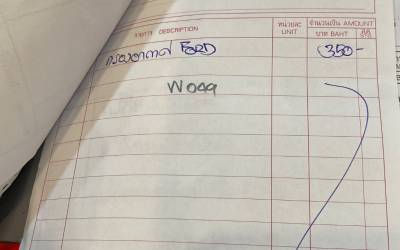 รายการ DESCRIPTION หน่วยละ UNIT จำนวนเงิน AMOUNT บาท BAHT
กรองอากาศ FORD 350-
พอลล